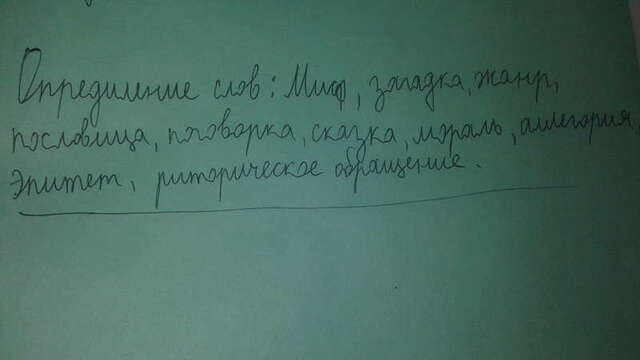 Определение слов: Миф, загадка, жанр,
пословица, поговорка, сказка, мораль, аллегория,
эпитет, риторическое обращение.